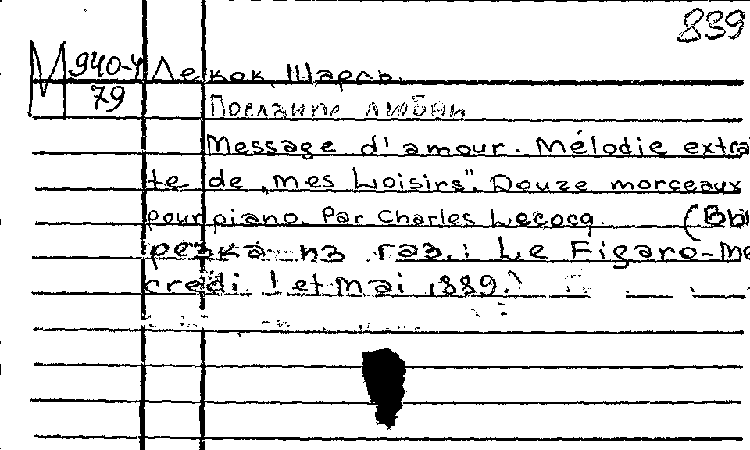 839
М 940-4
79
Лекок, Шарль.
Послание любви
Message d'amour. Mélodie extrai
te de „Mes Loisirs". Douze morceaux
pour piano. Par Charles Lecocq. (Вы
резка из газ.: Le Figaro-Me
credi 1 et mai 1889.)